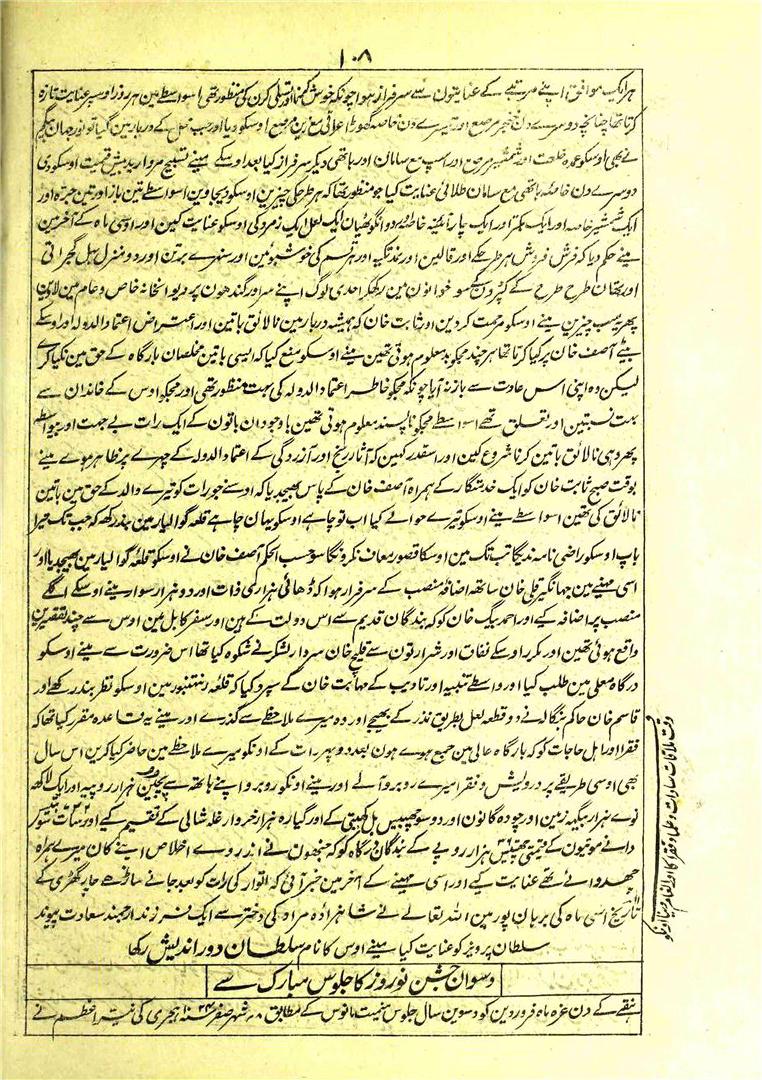 ۱۰۸
ہر ایک موافق اپنے مرتبے کے عنایتون سے سرفراز ہوا چونکہ خوش کرنا اور تسلی کرن کی منظور تھی اسواسطے مین ہر روز اوسپر عنایت تازہ
کرتا تھا چنانچہ دوسرے دن خنجر مرصع اور تیسرے دن خاصہ گھوڑا عراقی مع زین مرصع اوسکو دیا اور جب محل کے دربار مین گیا تو نورجہان بیگم
نے بھی اوسکو عمدہ خلعت اور شمشیر مرصع اور اسپ مع سامان اور ہاتھی دیکر سرفراز کیا بعد اوسکے مینے تسبیح مروارید بیش قیمت اوسکو دی
دوسرے دن خاصہ ہاتھی مع سامان طلائی عنایت کیا جو منظور تھا کہ ہر طرحکی چیزین اوسکو دیجاوین اسواسطے تین باز اور تین جرہ اور
ایک شمشیر خاصہ اور ایک بکتر اور ایک چار آئینہ خاصہ دو انگوٹھیان ایک لعل ایک زمرد کی اوسکو عنایت کین اور اوسی ماہ کے آخر مین
مینے حکم دیا کہ فرش فروش ہر طرحکے اور قالین اور نمد تکیہ اور ہر قسم کی خوشبوئین اور سنہرے برتن اور دو منزل بہل گجراتی
اور تھان طرح طرح کے کپڑون کے سو خوانون مین رکھکر احدی لوگ اپنے سر اور کندھون پر دیوانخانہ خاص و عام مین لاوین
پھر یہ سب چیزین مینے اوسکو مرحمت کردین اور ثابت خان کہ ہمیشہ دربار مین نالائق باتین اور اعتراض اعتماد الدولہ اور اوسکے
بیٹے آصف خان پر کیا کرتا تھا ہر چند مجکو بد معلوم ہوتی تھین مینے اوسکو منع کیا کہ ایسی باتین مخلصان بارگاہ کے حق مین نکیا کرے
لیکن وہ اپنی اس عادت سے باز نہ آیا چونکہ مجکو خاطر اعتماد الدولہ کی بہت منظور تھی اور مجکو اوس کے خاندان سے
بہت نسبتین اور تعلق تھے اسواسطے مجکو ناپسند معلوم ہوتی تھین باوجود ان باتون کے ایک رات بے جہت اور بیواسطے
پھر وہی نالائق باتین کرنا شروع کین اور اسقدر کہین کہ آثار رنج اور آزردگی کے اعتماد الدولہ کے چہرے پر ظاہر ہوے مینے
بوقت صبح ثابت خان کو ایک خدمتگار کے ہمراہ آصف خان کے پاس بھیجدیا کہ اوسنے جو رات کو تیرے والد کے حق مین باتین
نالائق کی تھین اسواسطے مینے اوسکو تیرے حوالے کیا اب تو چاہے اوسکو یہان چاہے قلعہ گوالیار مین بند رکھ کہ جب تک تیرا
باپ اوسکو راضی نامہ ندیگا تب تک مین اوسکا قصور معاف نکرونگا سو حسب الحکم آصف خان نے اوسکو قلعہ گوالیار مین بھیجدیا اور
اسی مہینے مین جہانگیر قلی خان ساتھ اضافہ منصب کے سرفراز ہوا کہ ڈھائی ہزاری ذات اور دو ہزار سوار مینے اوسکے اگلے
منصب پر اضافہ کیے اور احمد بیگ خان کو کہ بندگان قدیم سے اس دولت کے ہین اور سفر کابل مین اوس سے چند تقصیرین
واقع ہوئی تھین اور مکرر اوسکے نفاق اور شرارتون سے قلیچ خان سردار لشکر نے شکوہ کیا تھا اس ضرورت سے مینے اوسکو
درگاہ معلی مین طلب کیا اور واسطے تنبیہ اور تادیب کے مہابت خان کے سپرد کیا کہ قلعہ رنتنبور مین اوسکو نظر بند رکھے اور
قاسم خان حاکم بنگالہ نے دو قطعہ لعل بطریق نذر کے بھیجے اور وہ میرے ملاحظے سے گذرے اور مینے یہ قاعدہ مقرر کیا تھا کہ
فقرا اور اہل حاجات کو کہ بارگاہ عالی مین جمع ہوے ہون بعد دو پہر رات کے اونکو میرے ملاحظے مین حاضر کیا کرین اس سال
بھی اوسی طریقے پر درویش و فقرا میرے روبرو آئے اور مینے اونکو روبرو اپنے ہاتھ سے پچپن ہزار روپیہ اور ایک لاکھ
نوے ہزار بیگہ زمین اور چودہ گانون اور دو سو چھبیس ہل کھیتی کے اور گیارہ ہزار خروار غلہ شالی کے تقسیم کیے اور سات سو بتیس
دانے موتیون کے قیمتی چھتیس ہزار روپے کے بندگان درگاہ کو کہ جنھون نے از روے اخلاص اپنے کان میرے ہمراہ
چھدوائے تھے عنایت کیے اور اسی مہینے کے آخر مین خبر آئی کہ اتوار کی رات کو بعد جانے ساڑھے چار گھڑی کے
تاریخ اسی ماہ کی برہان پور مین اللہ تعالے نے شاہزادہ مراد کی دختر سے ایک فرزند ارجمند سعادت پیوند
سلطان پرویز کو عنایت کیا مینے اوس کا نام سلطان دور اندیش رکھا
دسوان جشن نوروز کا جلوس مبارک سے
ہفتے کے دن غرہ ماہ فروردین کو دسوین سال جلوس میمنت مانوس کے مطابق ۸ شہر صفر سنہ ۱۰۲۴ ہجری کی نیر اعظم نے
وقت ملاقات سادات و علما و فقرا کا اور انعام